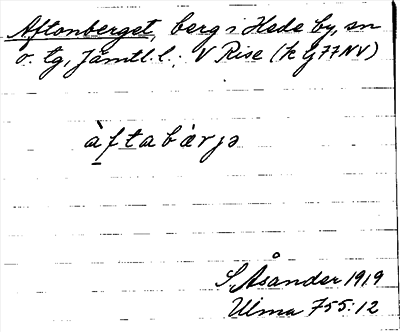 Aftonberget, berg i Hede by, sn
o. tg, Jämtl. l.; V Rise (k G77NV)
àftabàrjə
S. Åsander 1919
Ulma 755:12